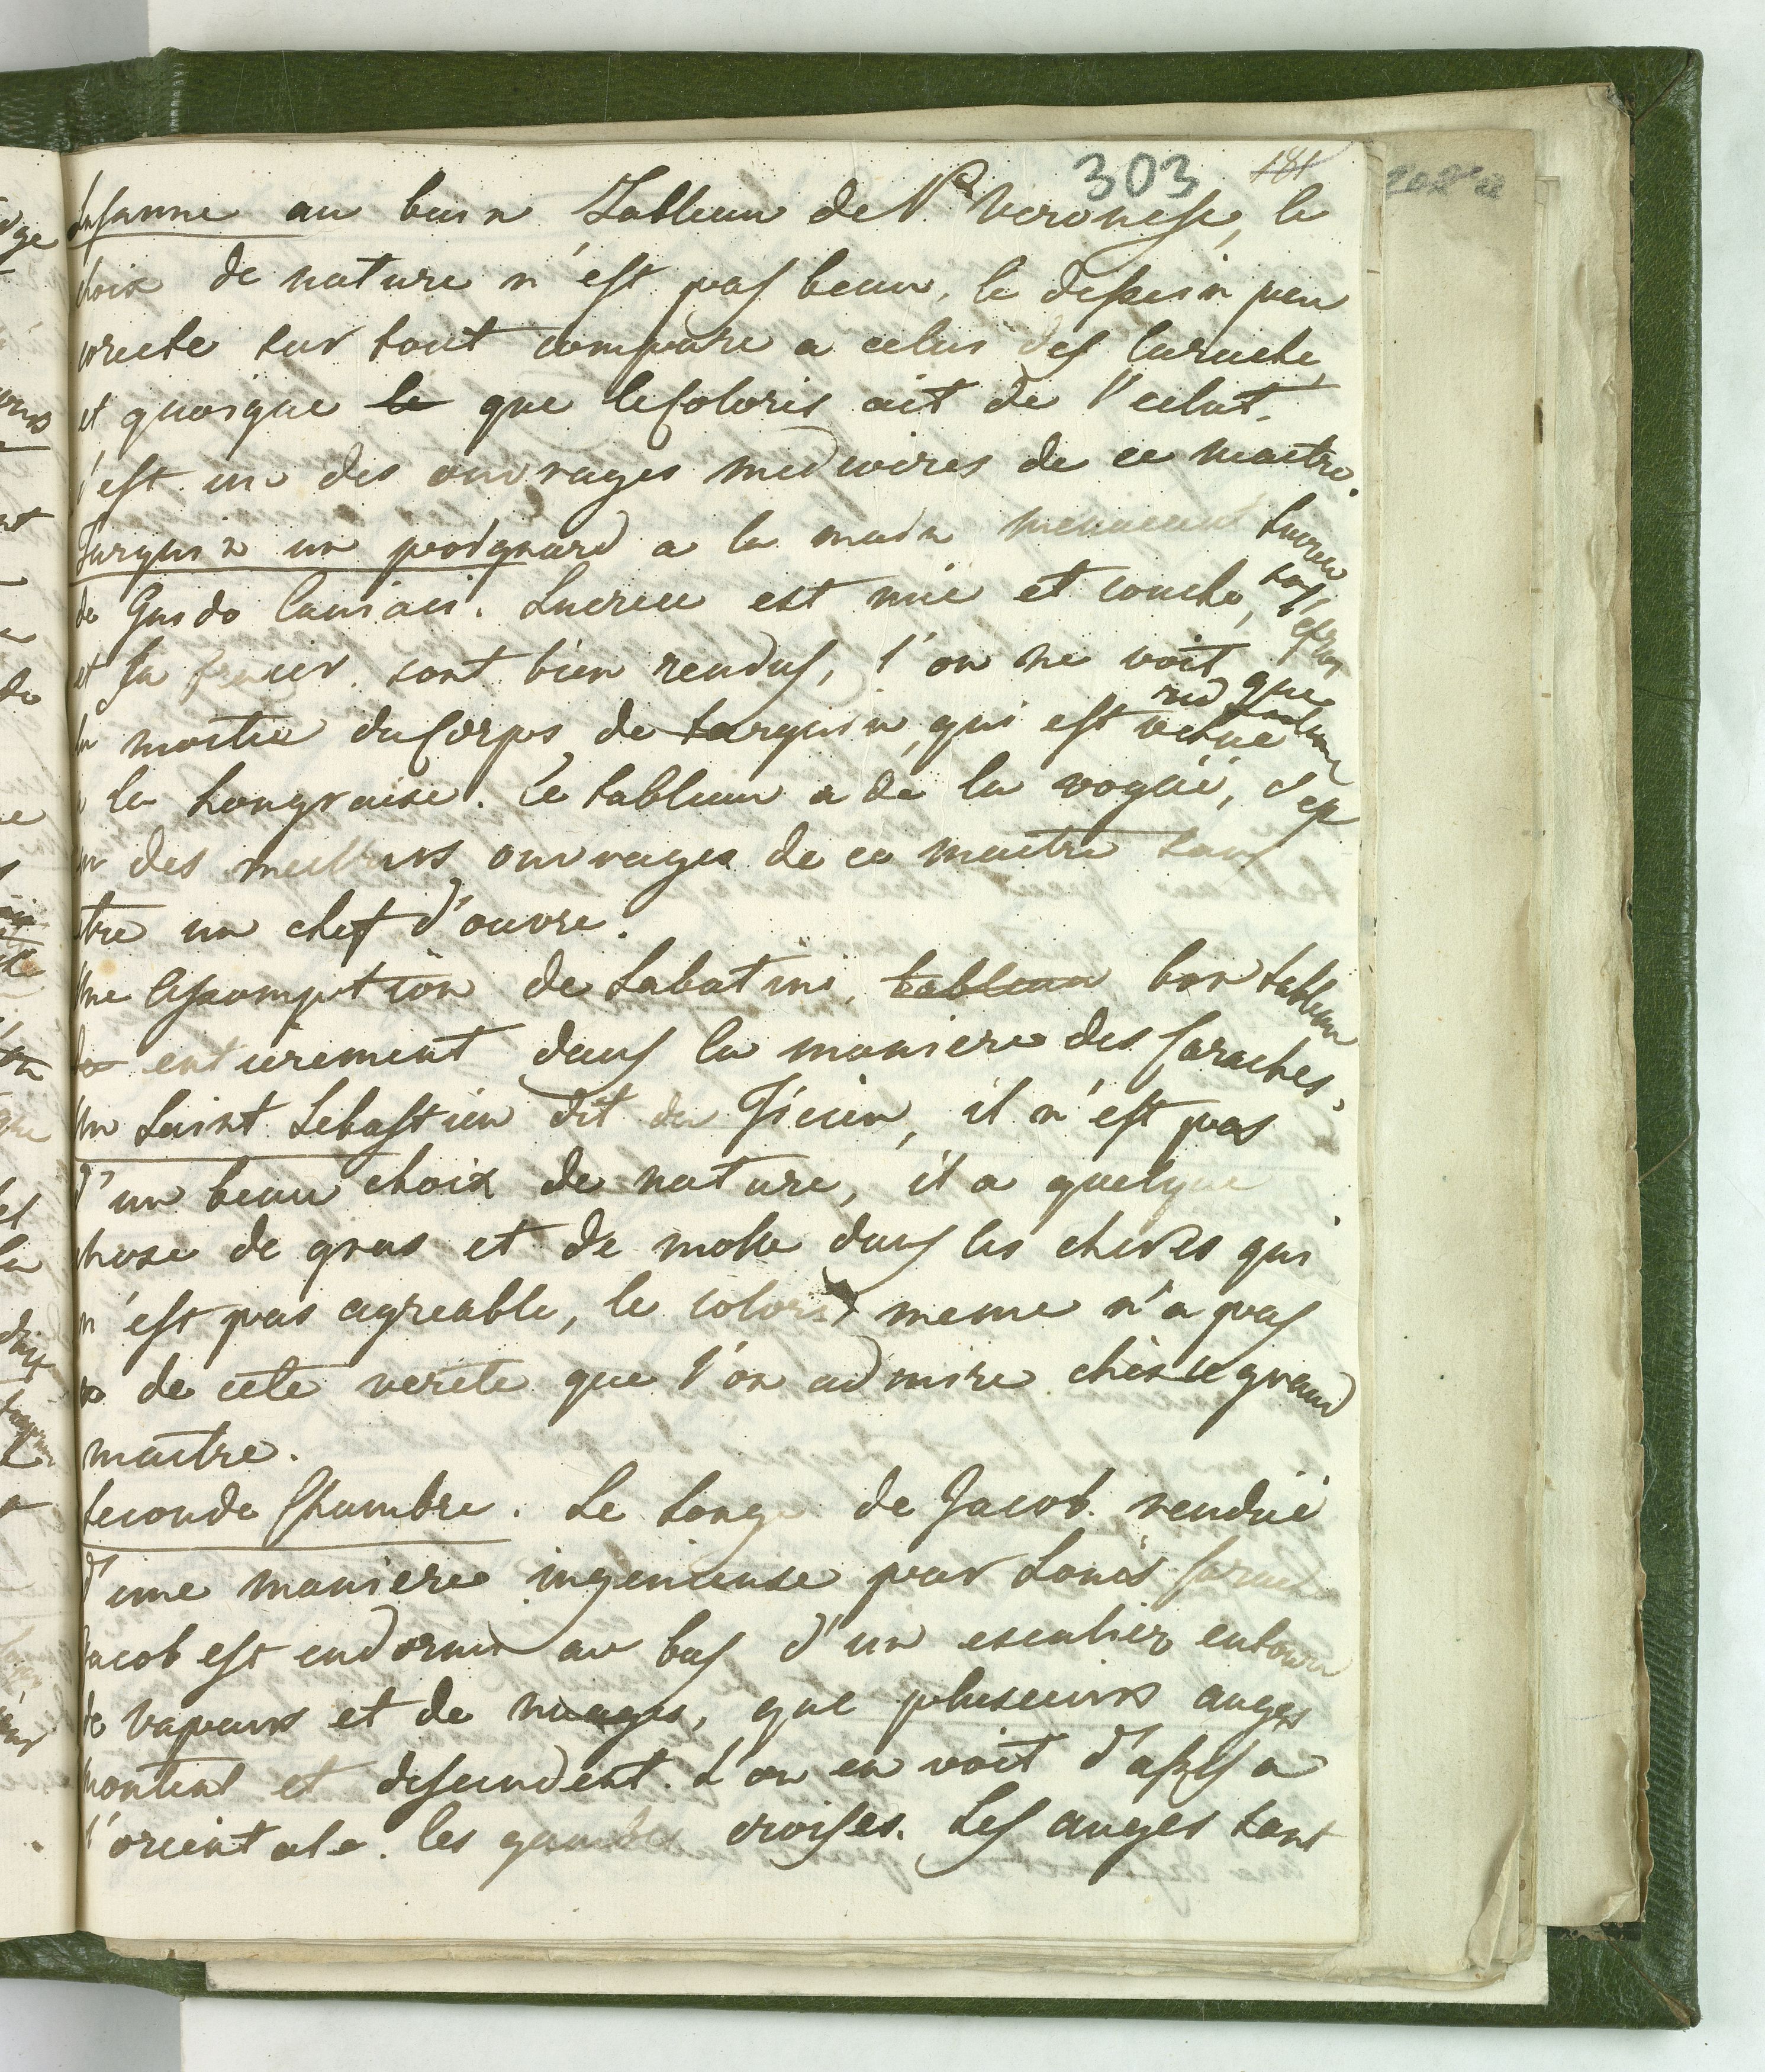 303 181
Susanne au bain Tableau de P. Veronese, le
choix de nature n'est pas beau, le dessein peu
correcte sur tout compare a celui des Carache
et quoique le que le Coloris ait de l'eclat.
c'est un des ouvrages mediocires de ce maitre.
Tarquin un poignard a la main menacant Lucrece
de Guido Caniaci. Lucrece est nuë et couche, son effroy
et sa fraieur sont bien rendus, l'on ne voit que
la moitie du Corps de tarquin, qui est vetue
a la hongraise. Ce tableau a de la vogüe, c'est
un des meilleurs ouvrages de ce maitre sans
etre un chef d'ouvre.
Une Assomption de Sabatini, tableau bon tableau
entierement dans la maniere des Caraches.
Un Saint Sebastien dit du Ticien, il n'est pas
d'un beau choix de nature, il a quelque
chose de gras et de molle dans les chaires qui
n'est pas agreable, le coloris meme n'a pas
de cete verite que l'on admire chès ce grand
maitre.
Seconde Chambre. Le Songe de Jacob rendüe
d'une maniere ingenieuse par Louis Carache
Jacob est endormi au bas d'un escalier entoure
de vapeurs et de nuages, que plusieurs anges
montent et descendent. L'on en voit d'assis a
l'orientale. les jambes croises. Les anges sont